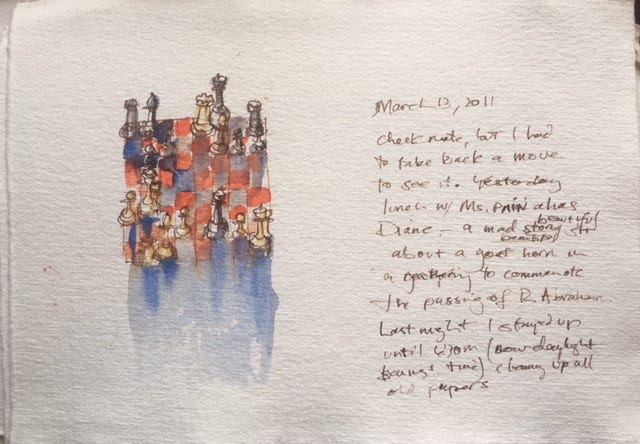 March 13, 2011
check mate, but I had
to take back a move
to see it. Yesterday
lunch w/ Ms. PAIN alias
Diane – a mad story
beautiful
beautiful
about a goat horn in
a gathering to
the passing of R. Abraham
Last night I stayed up
until (now daylight
savings time) up all
old papers